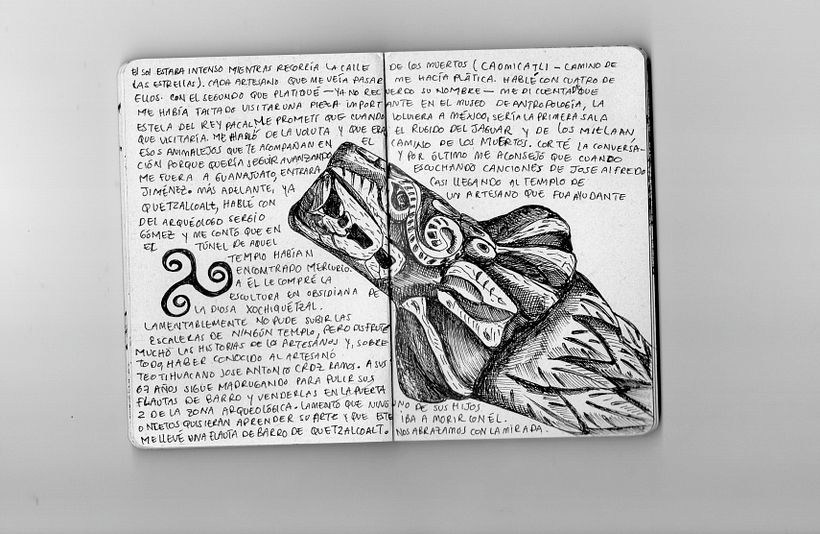 El sol estaba intenso mientras recorría la calle de los muertos (Caomicatli — camino de
las estrellas). Cada artesano que me veía pasar me hacía plática. Hablé con cuatro de
ellos. Con el segundo que platiqué — ya no recuerdo su nombre — me di cuenta que
me había faltado visitar una pieza importante en el museo de antropología, la
estela del rey Pacal. Me prometí que cuando volviera a México, sería la primera sala
que visitaría. Me habló de la voluta y que era el rugido del jaguar y de los
esos animalejos que te acompañan en el camino de los muertos. Corté la conversa-
ción porque quería seguir avanzando y por último me aconsejó que cuando
me fuera a Guanajuato, entrara escuchando canciones de Jose Alfredo
Jiménez. Más adelante, ya casi llegando al templo de
Quetzalcoalt, hablé con un artesano que fua ayudante
del arqueólogo Sergio
Gómez y me contó que en
el túnel de aquel
templo habían
encontrado mercurio.
A él le compré la
escultora en obsidiana de
la diosa Xochiquétzal.
Lamentablemente no pude subir las
escaleras de ningún templo, pero disfruté
mucho las historias de los artesanos y, sobre
todo, haber conocido al artesano
teotihuacano Jose Antonio Cruz Ramos. A sus
67 años sigue madrugando para pulir sus
flautas de barro y venderlas en la puerta
2 de la zona arqueológica. Lamentó que ninguno de sus hijos
o nietos quisieran aprender su arte y que este iba a morir con él.
Me llevé una flauta de barro de Quetzalcoalt. Nos abrazamos con la mirada.